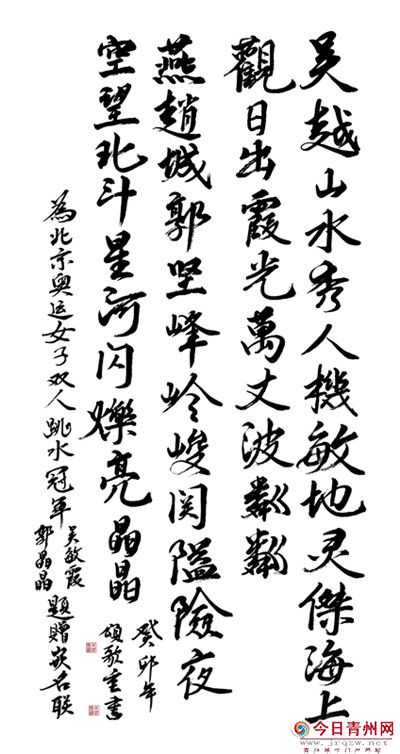 吴越山水秀人機敏地灵傑海上
觀日出霞光萬丈波粼粼
燕趙城郭坚峰岭峻関隘險夜
空望北斗星河闪爍亮晶晶
為北京奥运女子双人跳水冠军
吴敏霞
郭晶晶
題贈嵌名联
癸卯年
頌歌重書
今日青州网
www.jrqzw.net